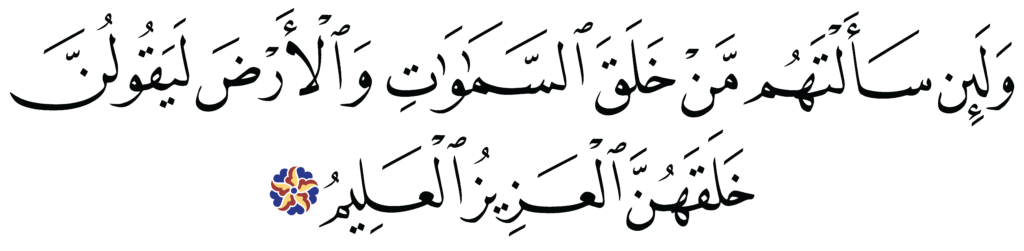 وَلَئِن سَأَلْتَهُم مَّنْ خَلَقَ ٱلسَّمَٰوَٰتِ وَٱلْأَرْضَ لَيَقُولُنَّ
خَلَقَهُنَّ ٱلْعَزِيزُ ٱلْعَلِيمُ